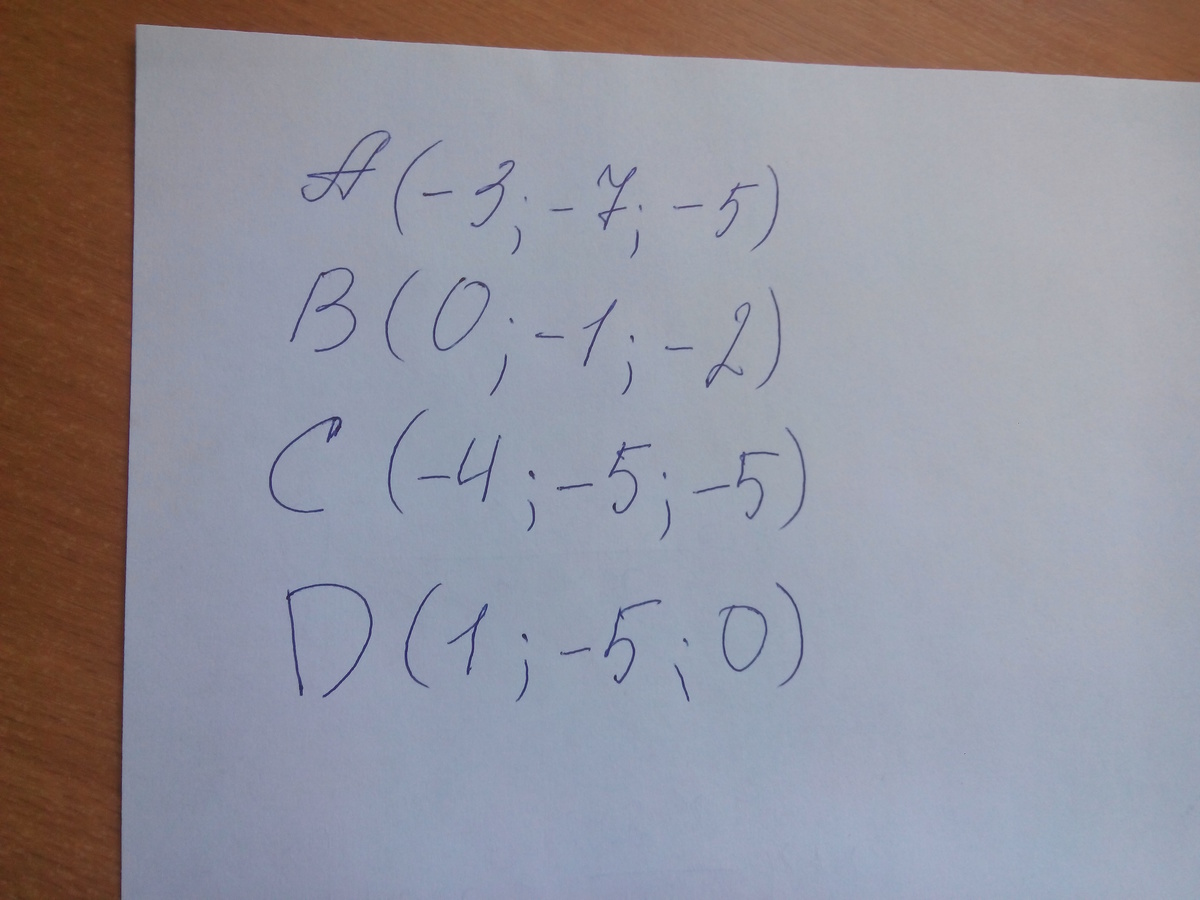 A(-3; -7; -5)
B(0; -1; -2)
C(-4; -5; -5)
D(1; -5; 0)